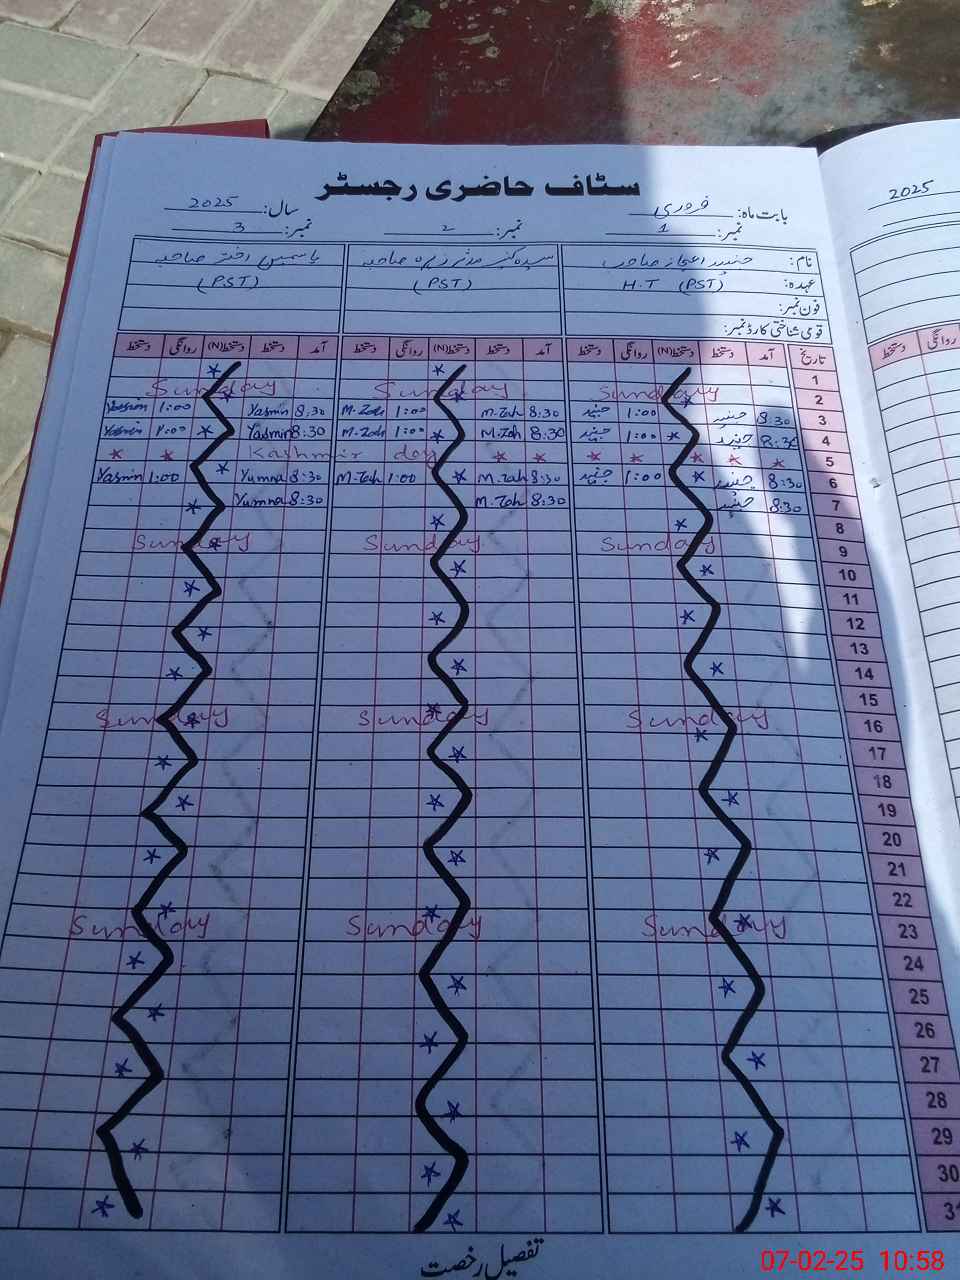 سٹاف حاضری رجسٹر
بابت ماہ: فروری سال: 2025
2025
نمبر: 1 نمبر: 2 نمبر: 3
نام: جنید اعجاز صاحب سیدہ کنیز مدثر زہرہ صاحبہ یاسمین اختر صاحبہ
عہدہ: H.T (PST) (PST) (PST)
فون نمبر:
قومی شناختی کارڈ نمبر:
تاریخ آمد دستخط دستخط(N) روانگی دستخط آمد دستخط دستخط(N) روانگی دستخط آمد دستخط دستخط(N) روانگی دستخط
روانگی دستخط
1
2 Sunday Sunday Sunday
3 8:30 جنید 1:00 جنید 8:30 M.Zah 1:00 M.Zah 8:30 Yasmin 1:00 Yasmin
4 8:30 جنید 1:00 جنید 8:30 M.Zah 1:00 M.Zah 8:30 Yasmin 1:00 Yasmin
5 Kashmir day
6 8:30 جنید 1:00 جنید 8:30 M.Zah 1:00 M.Zah 8:30 Yumna 1:00 Yasmin
7 8:30 جنید 8:30 M.Zah 8:30 Yumna
8
9 Sunday Sunday Sunday
10
11
12
13
14
15
16 Sunday Sunday Sunday
17
18
19
20
21
22
23 Sunday Sunday Sunday
24
25
26
27
28
29
30
31
تفصیل رخصت
07-02-25 10:58